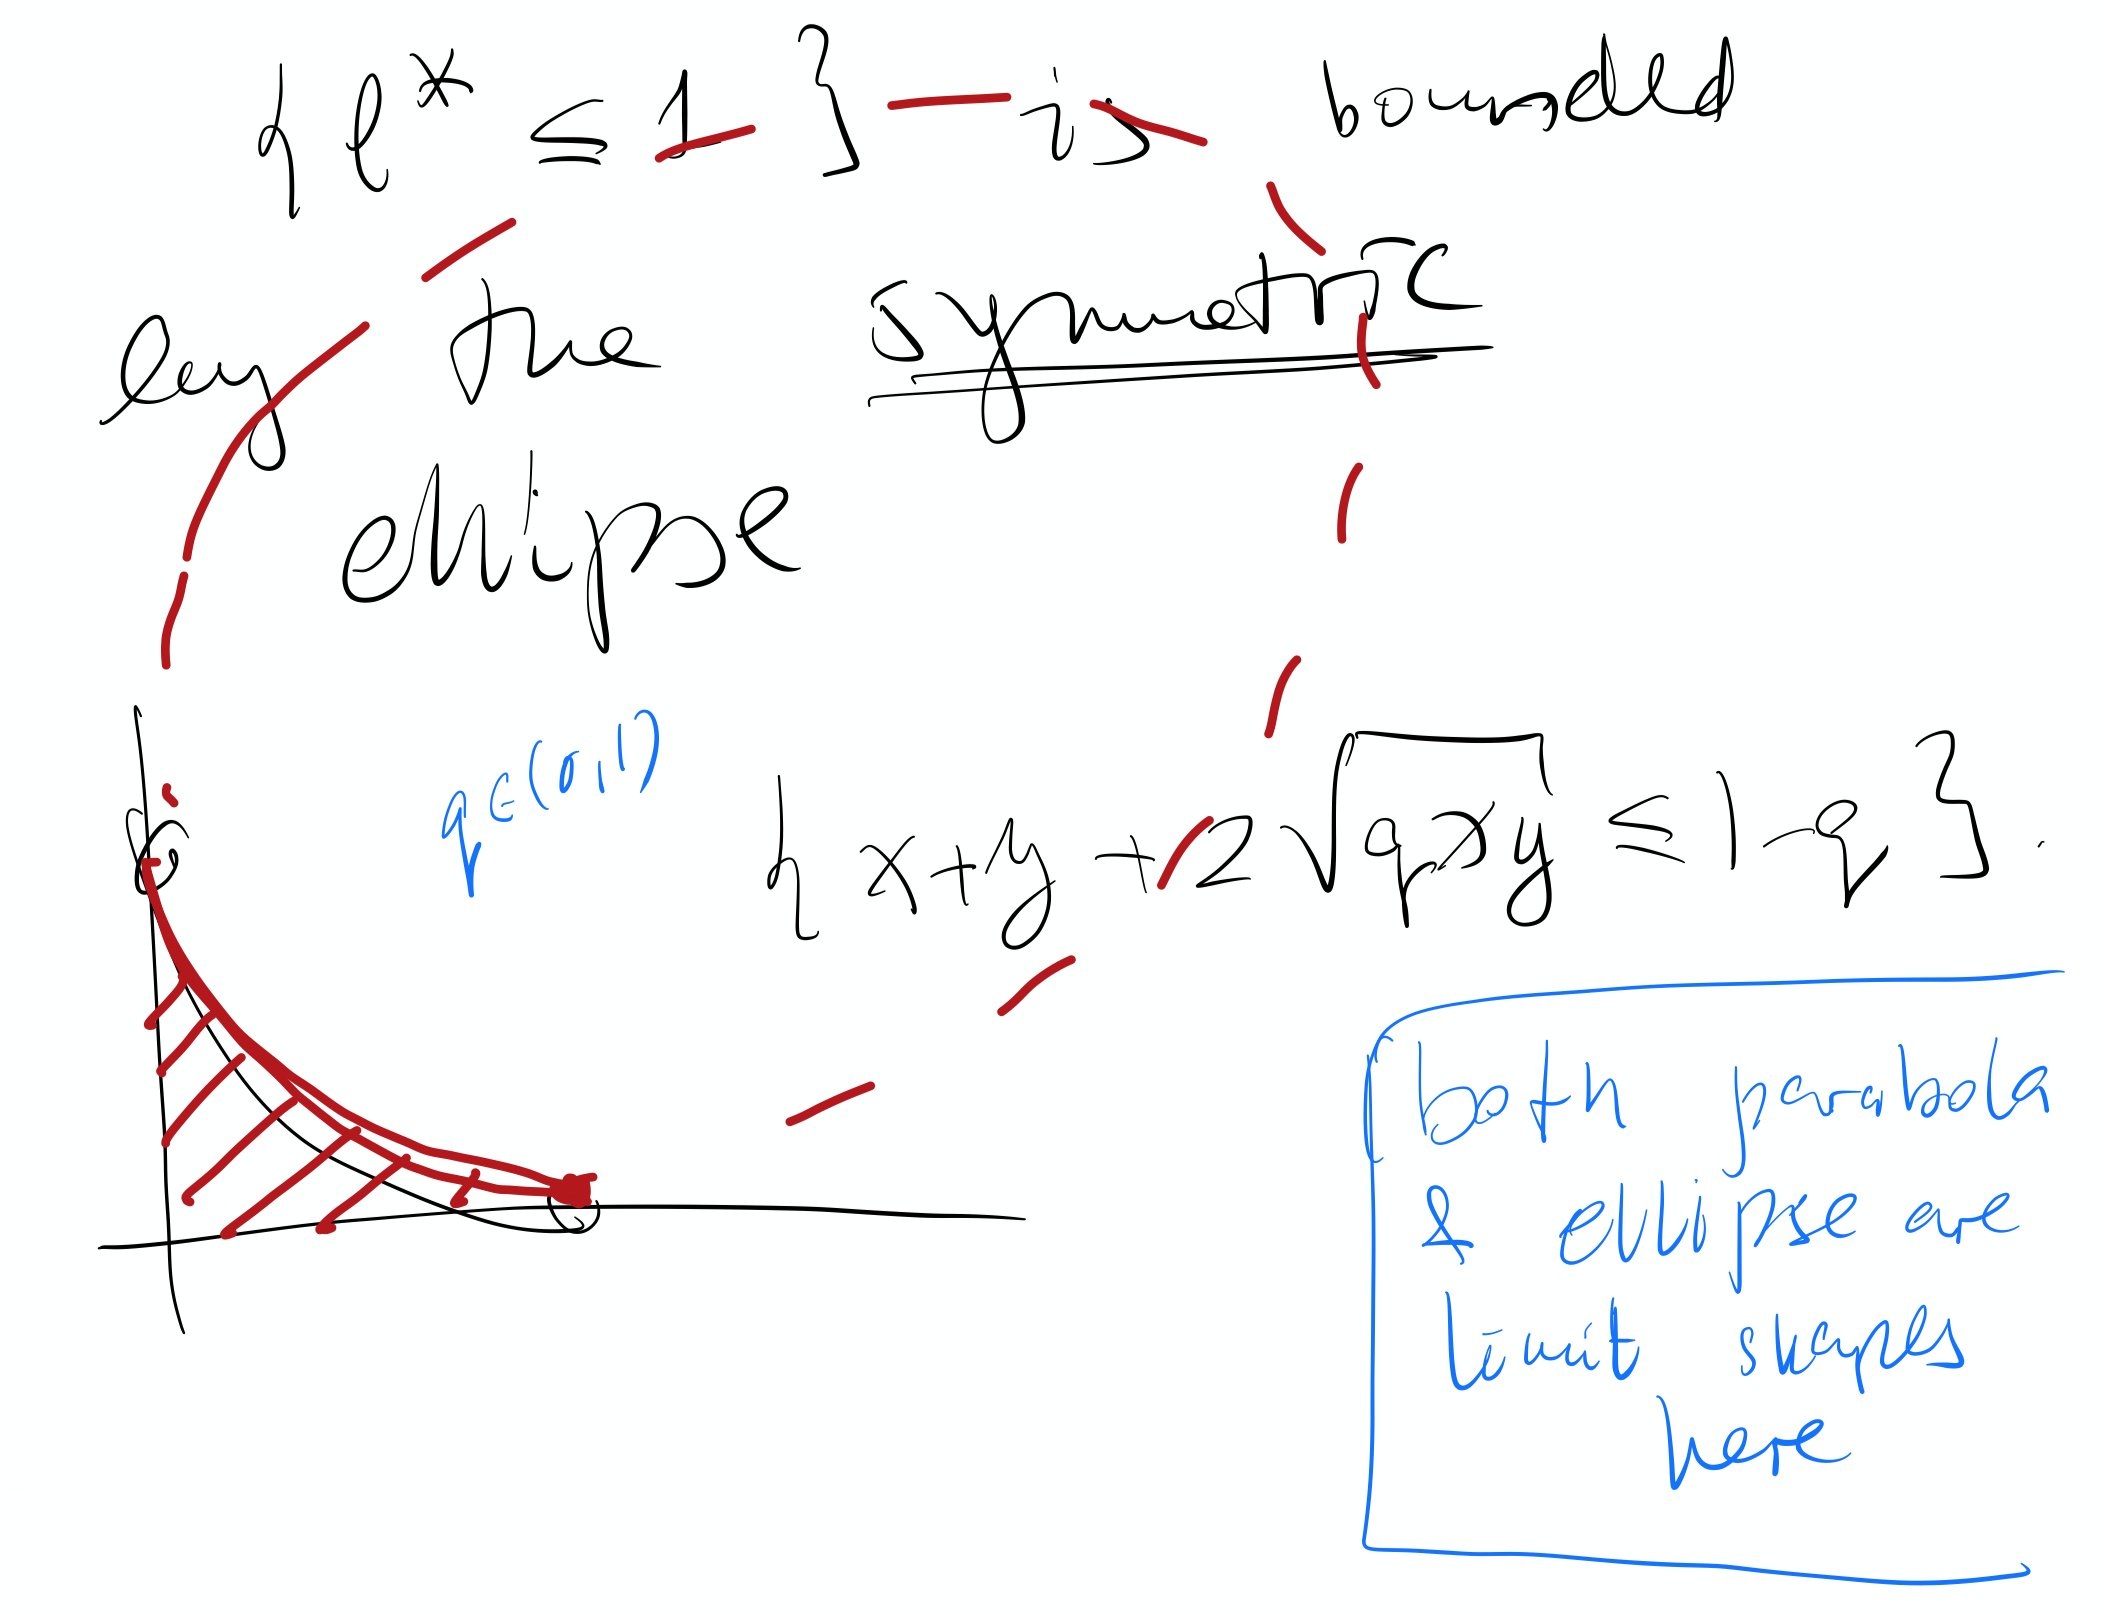 { ℓ* ≤ 1 } is bounded
by the symmetric
ellipse
q ∈ (0,1)
{ x+y+2√qxy ≤ 1-q }.
both parabola
& ellipse are
limit shapes
here